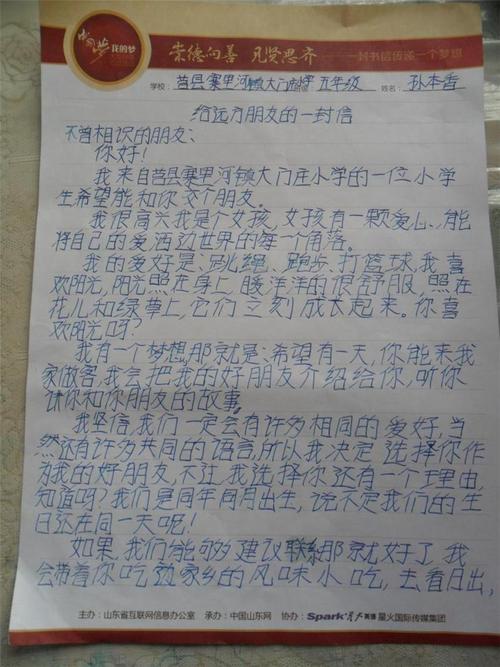 中国梦 我的梦
崇德向善 见贤思齐 ——一封书信传递一个梦想
学校: 莒县寨里河镇大门庄小学 五年级 姓名: 孙本香
给远方朋友的一封信
不曾相识的朋友:
你好!
我来自莒县寨里河镇大门庄小学的一位小学
生希望能和你交个朋友。
我很高兴我是个女孩,女孩有一颗爱心、能
将自己的爱洒边世界的每一个角落。
我的爱好是:跳绳、跑步、打篮球,我喜
欢阳光,阳光照在身上,暖洋洋的很舒服,照在
花儿和绿草上,它们立刻成长起来。你喜
欢阳光吗?
我有一个梦想那就是:希望有一天,你能来我
家做客,我会把我的好朋友介绍给你,听你
讲你和你朋友的故事,
我坚信,我们一定会有许多相同的爱好,当
然还有许多共同的语言,所以我决定选择你作
为我的好朋友,不过,我选择你还有一个理由,
知道吗?我们是同年同月出生,说不定我们的生
日还在同一天呢!
如果,我们能够建议联系那就好了,我
会带着你吃边家乡的风味小吃,去看日出,
主办:山东省互联网信息办公室 承办:中国山东网 协办:Spark 星火英语 星火国际传媒集团